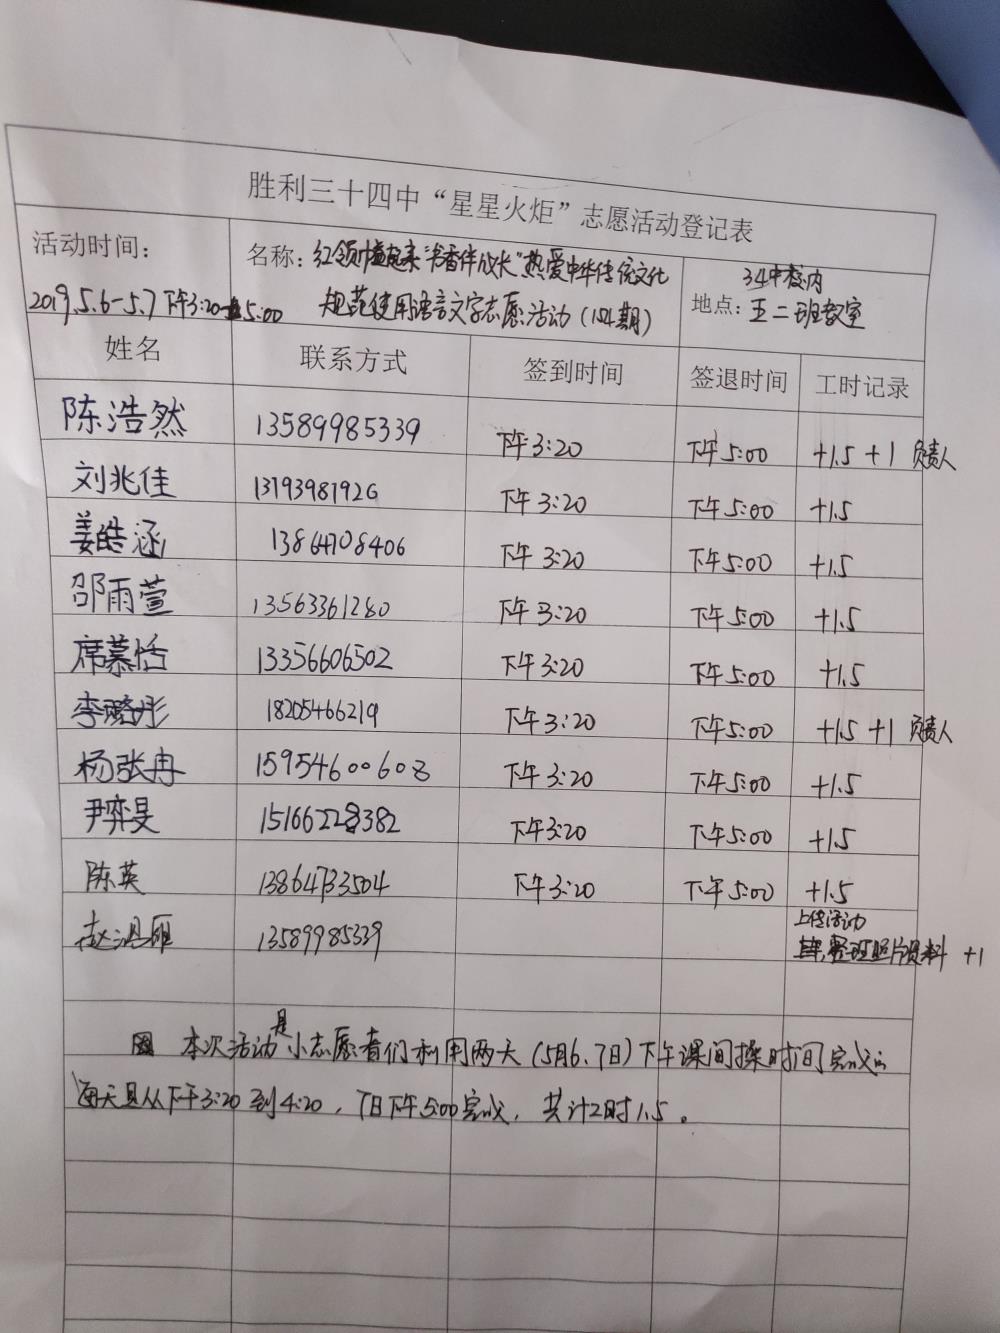 胜利三十四中“星星火炬”志愿活动登记表
活动时间：
2019.5.6-5.7 下午3:20-5:00
名称：红领巾 “书香伴成长”热爱中华传统文化
规范使用语言文字志愿活动（154期）
34中校内
地点：五二班教室
姓名 联系方式 签到时间 签退时间 工时记录
陈浩然 13589985339 下午3:20 下午5:00 +1.5 +1 负责人
刘兆佳 13193981926 下午3:20 下午5:00 +1.5
姜皓涵 13864708406 下午3:20 下午5:00 +1.5
邵雨萱 13563361280 下午3:20 下午5:00 +1.5
席慕恬 13356606502 下午3:20 下午5:00 +1.5
李晓彤 18205466219 下午3:20 下午5:00 +1.5 +1 负责人
杨张冉 15954600608 下午3:20 下午5:00 +1.5
尹弈旻 15166228382 下午3:20 下午5:00 +1.5
陈英 13864733504 下午3:20 下午5:00 +1.5
赵洪雁 13589985339 上传活动
整理照片资料 +1
本次活动是小志愿者们利用两天（5月6、7日）下午课间操时间完成的
每天是从下午3:20到4:20，7日下午5:00完成，共计2时1.5。